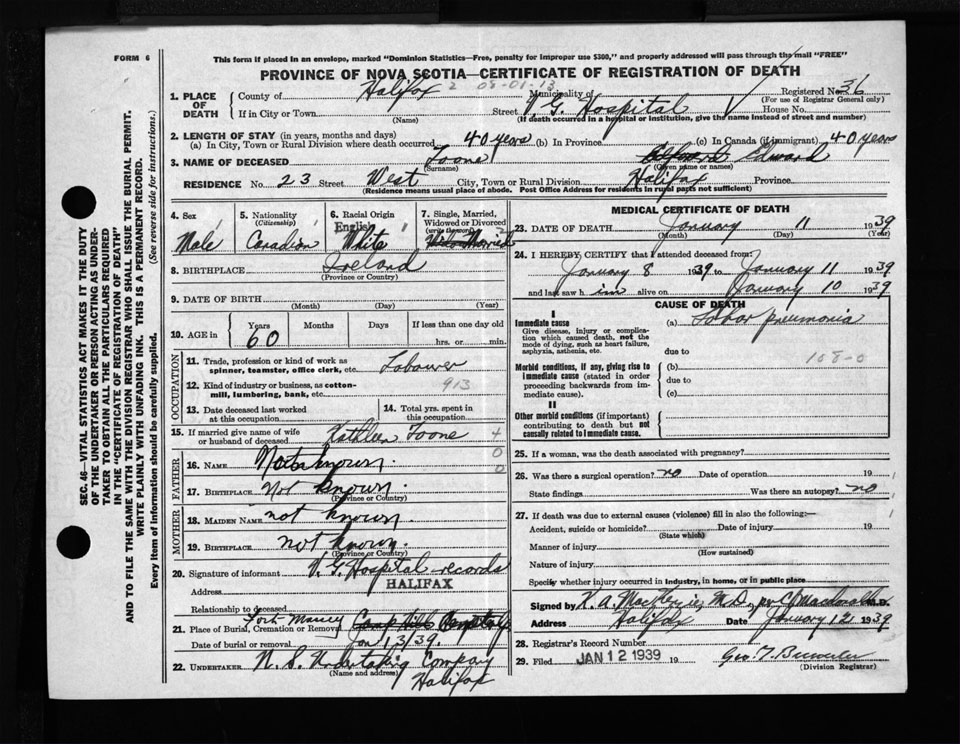 FORM 6
This form if placed in an envelope, marked "Dominion Statistics—Free, penalty for improper use $300," and properly addressed will pass through the mail "FREE"
PROVINCE OF NOVA SCOTIA—CERTIFICATE OF REGISTRATION OF DEATH
1. PLACE OF DEATH
County of Halifax 2 08-01-13 Municipality of Registered No. 36
(For use of Registrar General only)
If in City or Town Street V. G. Hospital House No.
(Name) (If death occurred in a hospital or institution, give the name instead of street and number)
2. LENGTH OF STAY (in years, months and days)
(a) In City, Town or Rural Division where death occurred 40 years (b) In Province (c) In Canada (if immigrant) 40 years
3. NAME OF DECEASED Toone Edward
(Surname) (Given name or names)
RESIDENCE No. 23 Street West City, Town or Rural Division Halifax Province
(Residence means usual place of abode. Post Office Address for residents in rural parts not sufficient)
4. Sex Male
5. Nationality (Citizenship) Canadian
6. Racial Origin English White
7. Single, Married, Widowed or Divorced (write the word) Married
8. BIRTHPLACE Ireland
(Province or Country)
9. DATE OF BIRTH
(Month) (Day) (Year)
10. AGE in Years 60 Months Days If less than one day old
hrs. or min.
OCCUPATION
11. Trade, profession or kind of work as spinner, teamster, office clerk, etc. Labourer
12. Kind of industry or business, as cotton-mill, lumbering, bank, etc. 913
13. Date deceased last worked at this occupation
14. Total yrs. spent in this occupation
15. If married give name of wife or husband of deceased Kathleen Toone 4
0
0
FATHER
16. NAME Not known.
17. BIRTHPLACE Not known.
(Province or Country)
MOTHER
18. MAIDEN NAME not known.
19. BIRTHPLACE not known.
(Province or Country)
20. Signature of informant V. G. Hospital records
Address HALIFAX
Relationship to deceased
21. Place of Burial, Cremation or Removal Fort Massey Camp Hill Cemetery
Date of burial or removal Jan 13/39.
22. UNDERTAKER N. S. Undertaking Company
(Name and address)
Halifax
MEDICAL CERTIFICATE OF DEATH
23. DATE OF DEATH January 11 1939
(Month) (Day) (Year)
24. I HEREBY CERTIFY that I attended deceased from:
January 8 1939 to January 11 1939
and last saw him alive on January 10 1939
CAUSE OF DEATH
I
Immediate cause
Give disease, injury or complication which caused death, not the mode of dying, such as heart failure, asphyxia, asthenia, etc.
(a) Lobar pneumonia
due to
108-0
Morbid conditions, if any, giving rise to immediate cause (stated in order proceeding backwards from immediate cause).
(b)
due to
(c)
II
Other morbid conditions (if important) contributing to death but not causally related to immediate cause.
25. If a woman, was the death associated with pregnancy?
26. Was there a surgical operation? no Date of operation 19
State findings Was there an autopsy? no
27. If death was due to external causes (violence) fill in also the following:—
Accident, suicide or homicide? Date of injury 19
(State which)
Manner of injury
(How sustained)
Nature of injury
Specify whether injury occurred in industry, in home, or in public place
Signed by M.D.
Address Halifax Date January 12 1939
28. Registrar's Record Number
29. Filed JAN 12 1939 19
(Division Registrar)
SEC. 46—VITAL STATISTICS ACT MAKES IT THE DUTY
OF THE UNDERTAKER OR PERSON ACTING AS UNDER-
TAKER TO OBTAIN ALL THE PARTICULARS REQUIRED
IN THE "CERTIFICATE OF REGISTRATION OF DEATH"
AND TO FILE THE SAME WITH THE DIVISION REGISTRAR WHO SHALL ISSUE THE BURIAL PERMIT.
WRITE PLAINLY WITH UNFADING INK. THIS IS A PERMANENT RECORD.
Every item of information should be carefully supplied. (See reverse side for instructions.)